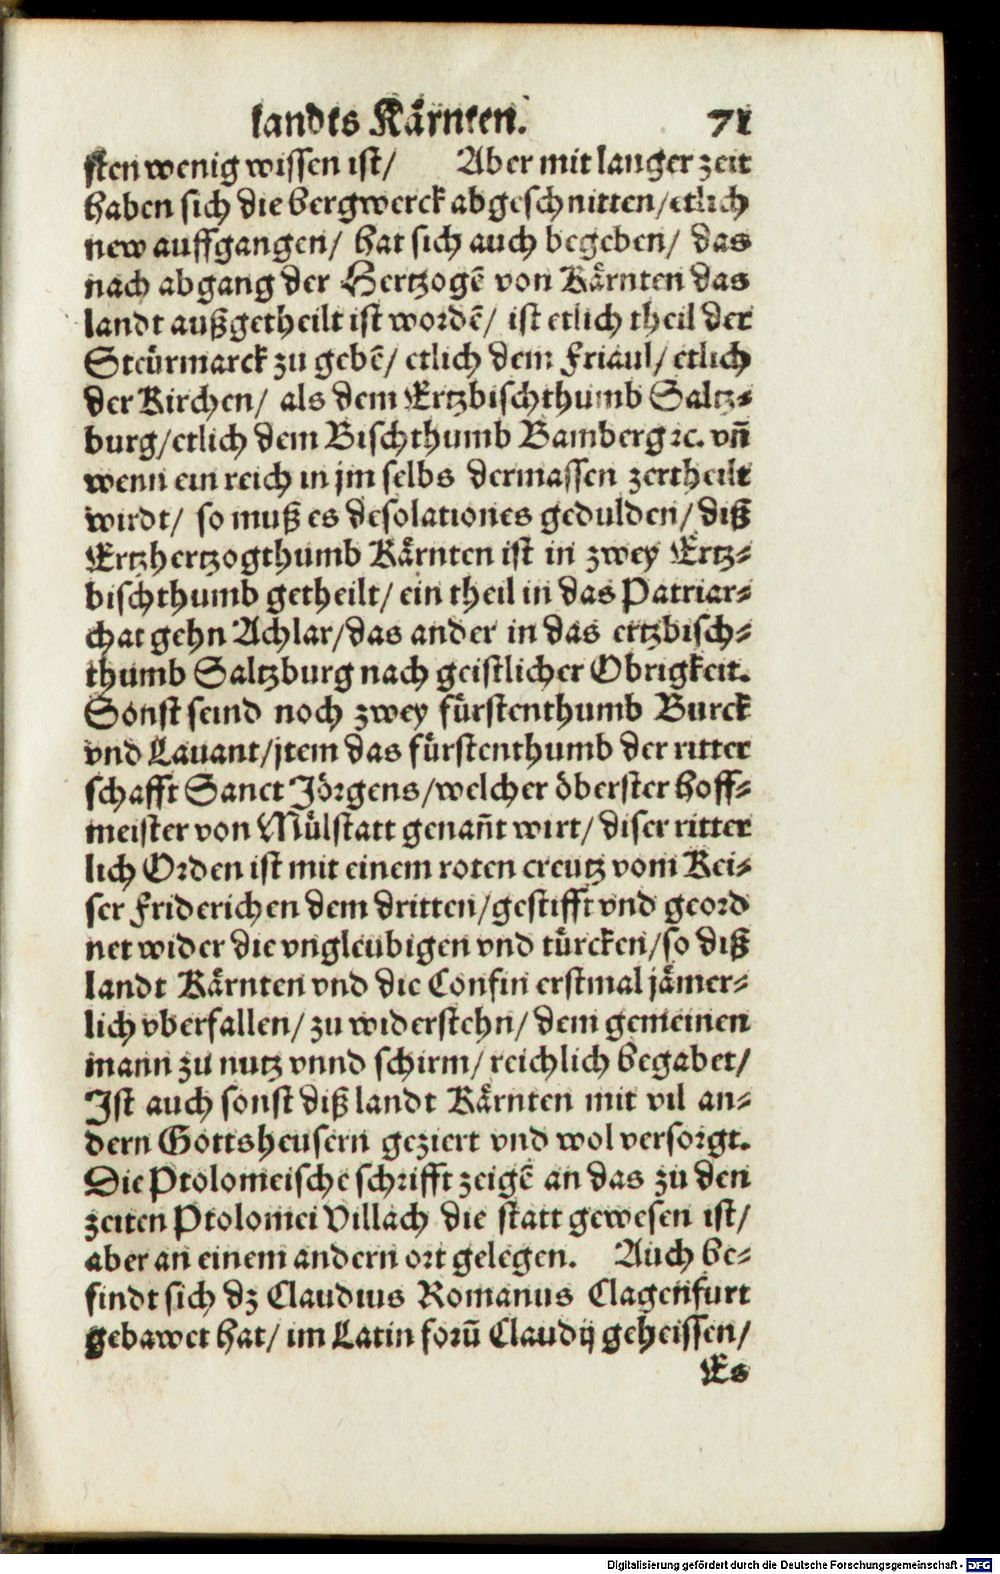 landts Kärnten. 71
sten wenig wissen ist/ Aber mit langer zeit
haben sich die bergwerck abgeschnitten/etlich
new auffgangen/ hat sich auch begeben/ das
nach abgang der Hertzogē von Kärnten das
landt außgetheilt ist wordē/ ist etlich theil der
Steürmarck zu gebē/ etlich dem Friaul/ etlich
der Kirchen/ als dem Ertzbischthumb Saltz-
burg/etlich dem Bischthumb Bamberg ꝛc. vn̄
wenn ein reich in jm selbs dermassen zertheilt
wirdt/ so muß es desolationes gedulden/ diß
Ertzhertzogthumb Kärnten ist in zwey Ertz-
bischthumb getheilt/ ein theil in das Patriar-
chat gehn Achlar/das ander in das ertzbisch-
thumb Saltzburg nach geistlicher Obrigkeit.
Sonst seind noch zwey fürstenthumb Burck
vnd Lauant/jtem das fürstenthumb der ritter
schafft Sanct Jörgens/welcher öberster hoff-
meister von Mülstatt genan̄t wirt/ diser ritter
lich Orden ist mit einem roten creutz vom Kei-
ser Friderichen dem dritten/gestifft vnd geord
net wider die vngleubigen vnd türcken/so diß
landt Kärnten vnd die Confin erstmal jämer-
lich vberfallen/ zu widerstehn/ dem gemeinen
mann zu nutz vnnd schirm/ reichlich begabet/
Ist auch sonst diß landt Kärnten mit vil an-
dern Gottsheusern geziert vnd wol versorgt.
Die Ptolomeische schrifft zeigē an das zu den
zeiten Ptolomei Villach die statt gewesen ist/
aber an einem andern ort gelegen. Auch be-
findt sich dz Claudius Romanus Clagenfurt
gebawet hat/ im Latin forū Claudij geheissen/
Es
Digitalisierung gefördert durch die Deutsche Forschungsgemeinschaft - DFG